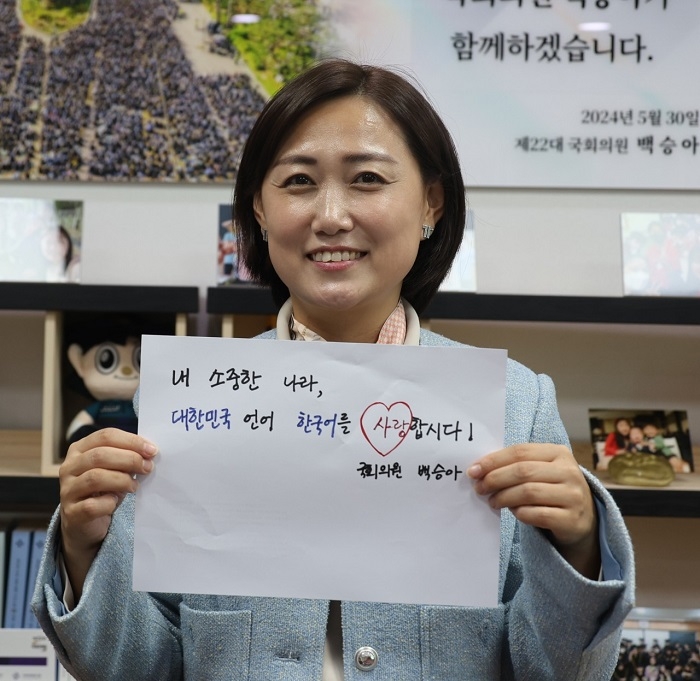 함께하겠습니다.
2024년 5월 30일
제22대 국회의원 백승아
내 소중한 나라,
대한민국 언어 한국어를 사랑합시다!
국회의원 백승아